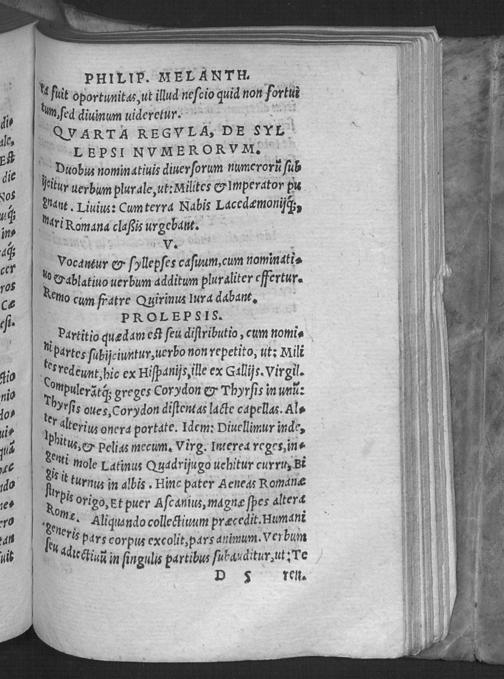 PHILIP. MELANTH.
ta fuit oportunitas, ut illud nescio quid non fortui
tum, sed diuinum uideretur.
QVARTA REGVLA, DE SYL
LEPSI NVMERORVM.
Duobus nominatiuis diuersorum numerorũ sub
ijcitur uerbum plurale, ut: Milites & Imperator pu
gnant. Liuius: Cum terra Nabis Lacedæmonijq́;,
mari Romana claßis urgebant.
V.
Vocantur & syllepses casuum, cum nominati-
uo & ablatiuo uerbum additum pluraliter effertur.
Remo cum fratre Quirinus Iura dabant.
PROLEPSIS.
Partitio quædam est seu distributio, cum nomi-
ni partes subijciuntur, uerbo non repetito, ut: Mili
tes redeunt, hic ex Hispanijs, ille ex Gallijs. Virgil.
Compulerãtq́; greges Corydon & Thyrsis in unũ:
Thyrsis oues, Corydon distentas lacte capellas. Al-
ter alterius onera portate. Idem: Diuellimur inde,
Iphitus, & Pelias mecum. Virg. Interea reges, in-
genti mole Latinus Quadrijugo uehitur curru, Bi
gis it turnus in albis. Hinc pater Aeneas Romanæ
stirpis origo, Et puer Ascanius, magnæ spes altera
Romæ. Aliquando collectiuum præcedit. Humani
generis pars corpus excolit, pars animum. Verbum
seu adiectiuũ in singulis partibus subauditur, ut: Te
D 5 ren.